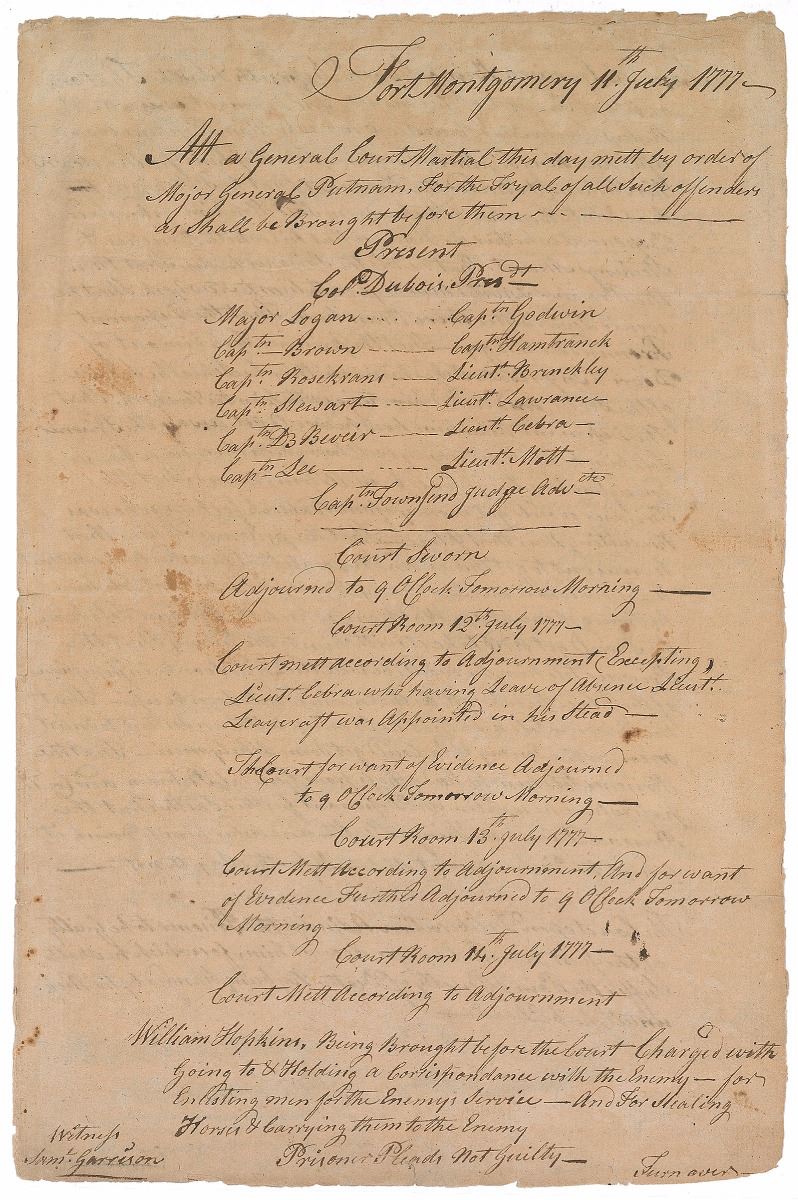 Fort Montgomery 11th July 1777
Att a General Court Martial this day mett by order of
Major General Putnam, For the Tryal of all Such offenders
as Shall be Brought before them
Present
Colo. Dubois, Presdt
Major Logan Captn Godwin
Captn Brown Captn Hamtranck
Captn Rosekrans Lieut. Brinckley
Captn Stewart Lieut. Lawrance
Captn D Beveir Lieut. Cebra
Captn Lee Lieut. Mott
Captn Townsend Judge Advcte
Court Sworn
Adjourned to 9 OClock Tomorrow Morning
Court Room 12th July 1777
Court mett according to Adjournment (Excepting,
Lieut. Cebra who having Leave of Absence Lieut.
Leaycraft was Appointed in his Stead
The Court for want of Evidence Adjourned
to 9 OClock Tomorrow Morning
Court Room 13th July 1777
Court Mett According to Adjournment, And for want
of Evidence Further Adjourned to 9 OClock Tomorrow
Morning
Court Room 14th July 1777
Court Mett According to Adjournment
William Hopkins, Being Brought before the Court Charged with
Going to & Holding a Correspondance with the Enemy — for
Enlisting men for the Enemy's Service — And For Stealing
Horses & Carrying them to the Enemy
Witness
Saml. Garrison Prisoner Pleads Not Guilty Turn over